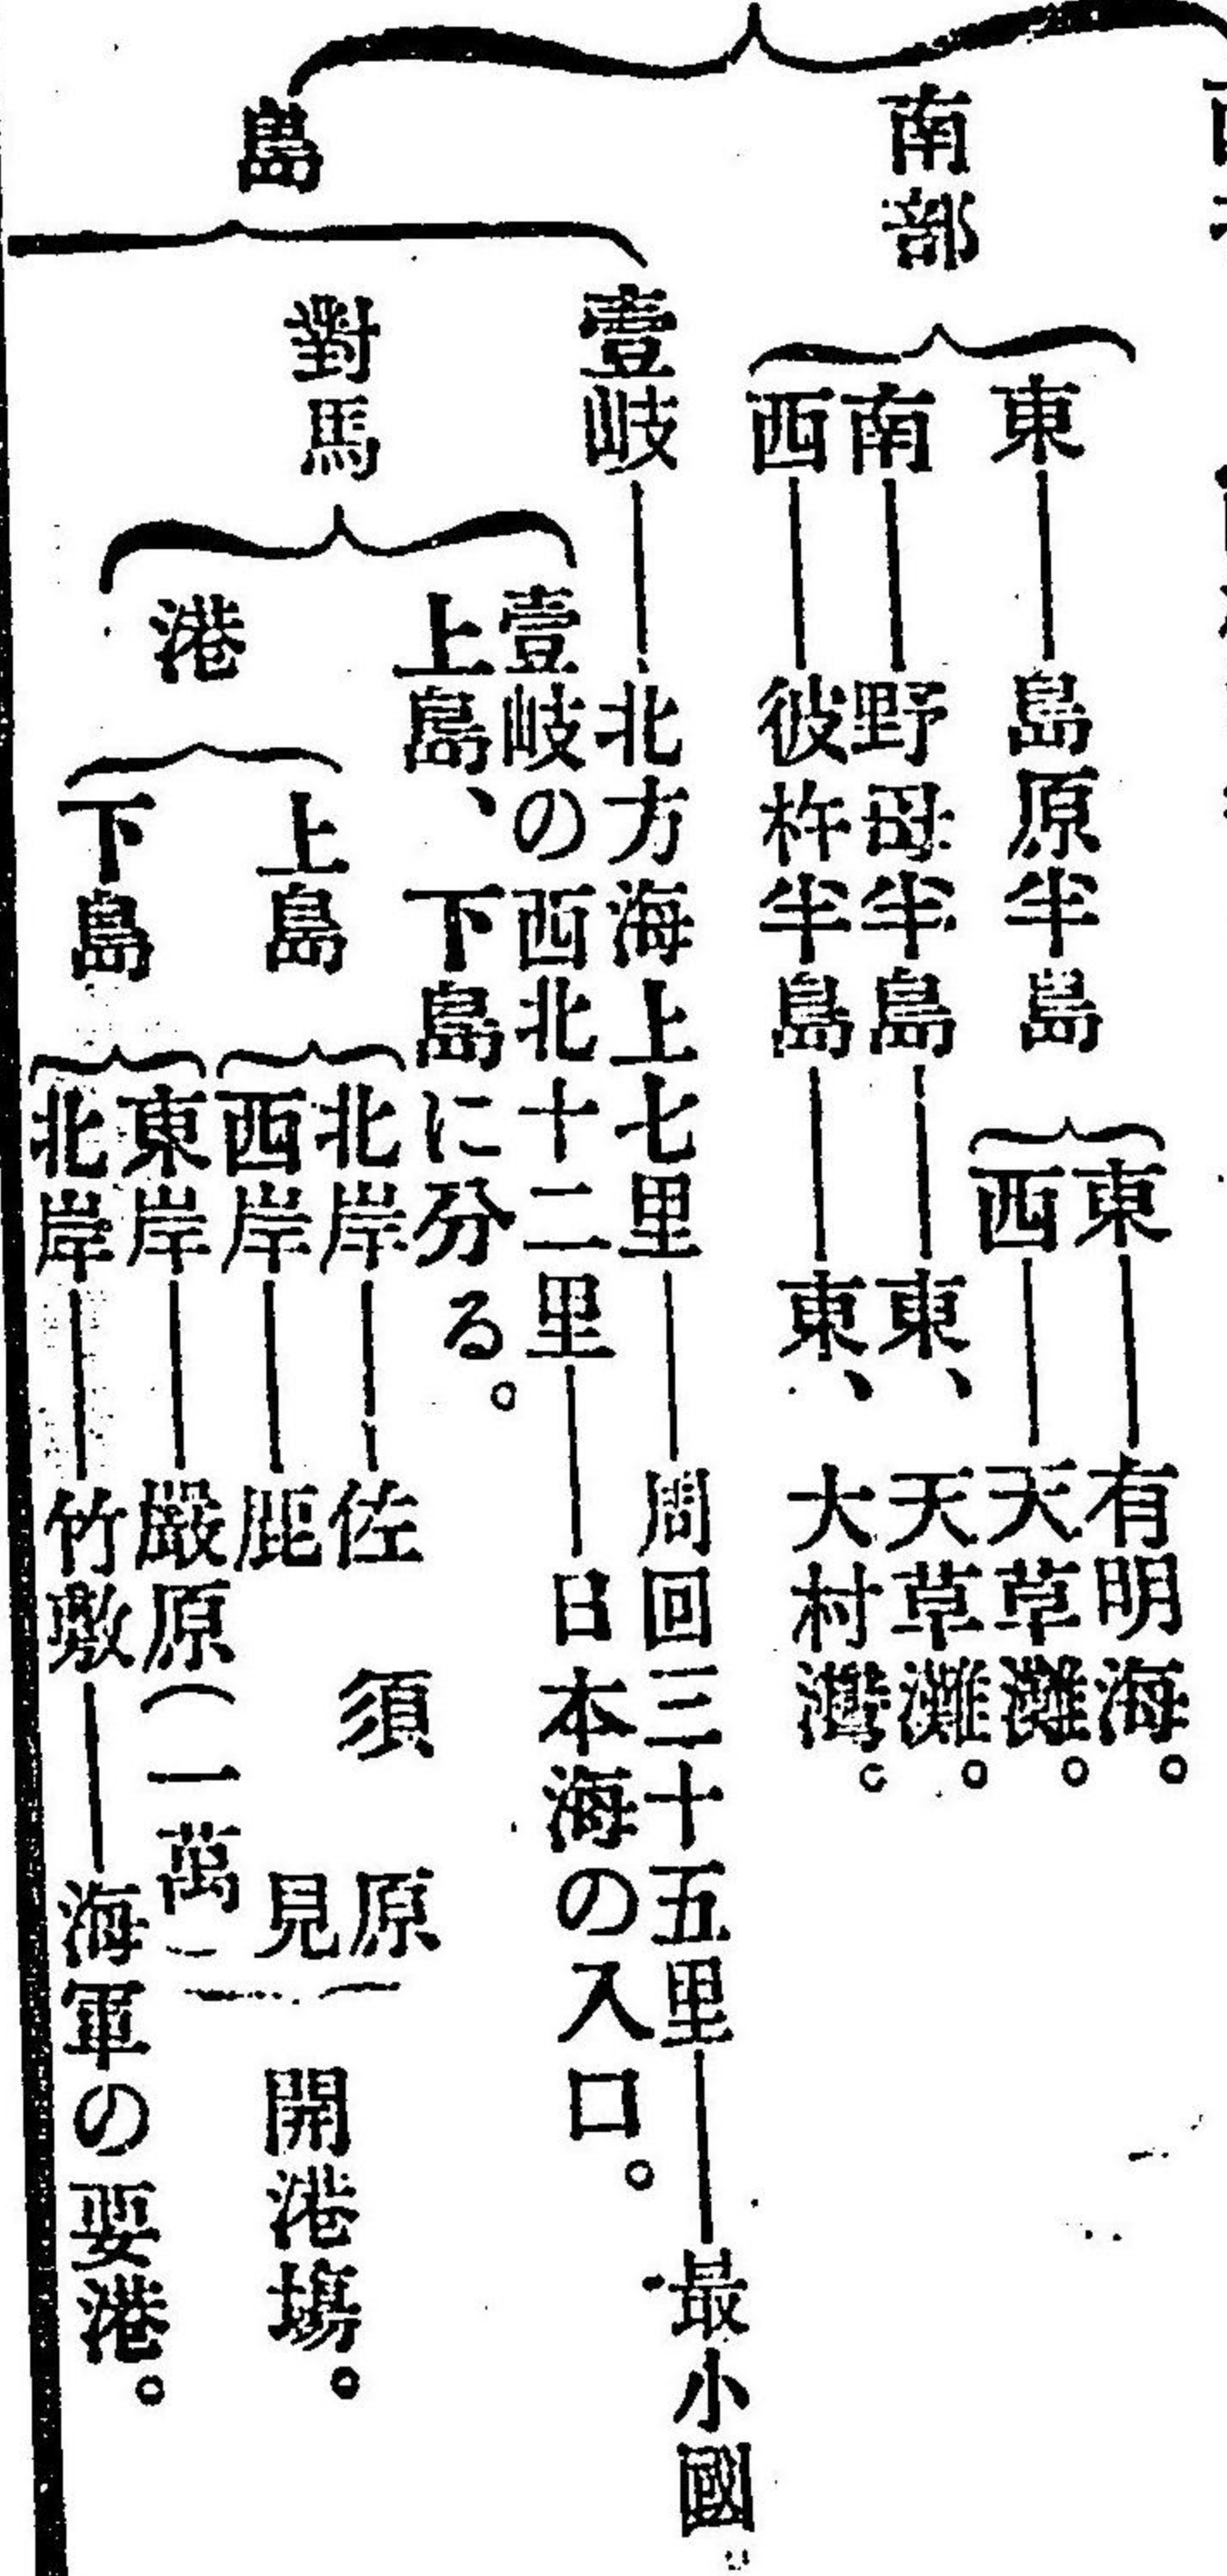 南部
東
島原半島
東
有明海。
西
天草灘。
南
野母半島
東、天草灘。
西
彼杵半島
東、大村灣。
島
壹岐
北方海上七里
周回三十五里
最小國。
對馬
壹岐の西北十二里
日本海の入口。
上島、下島に分る。
港
上島
北岸
佐須原
西岸
鹿見
開港塲。
下島
東岸
嚴原(一萬)
北岸
竹敷
海軍の要港。